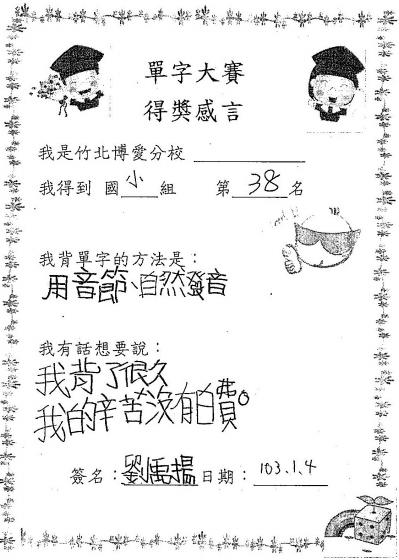 單字大賽
得獎感言
我是竹北博愛分校
我得到 國小組 第38名
我背單字的方法是:
用音節、自然發音
我有話想要說:
我背了很久
我的辛苦沒有白費。
簽名:劉 揚 日期:103.1.4